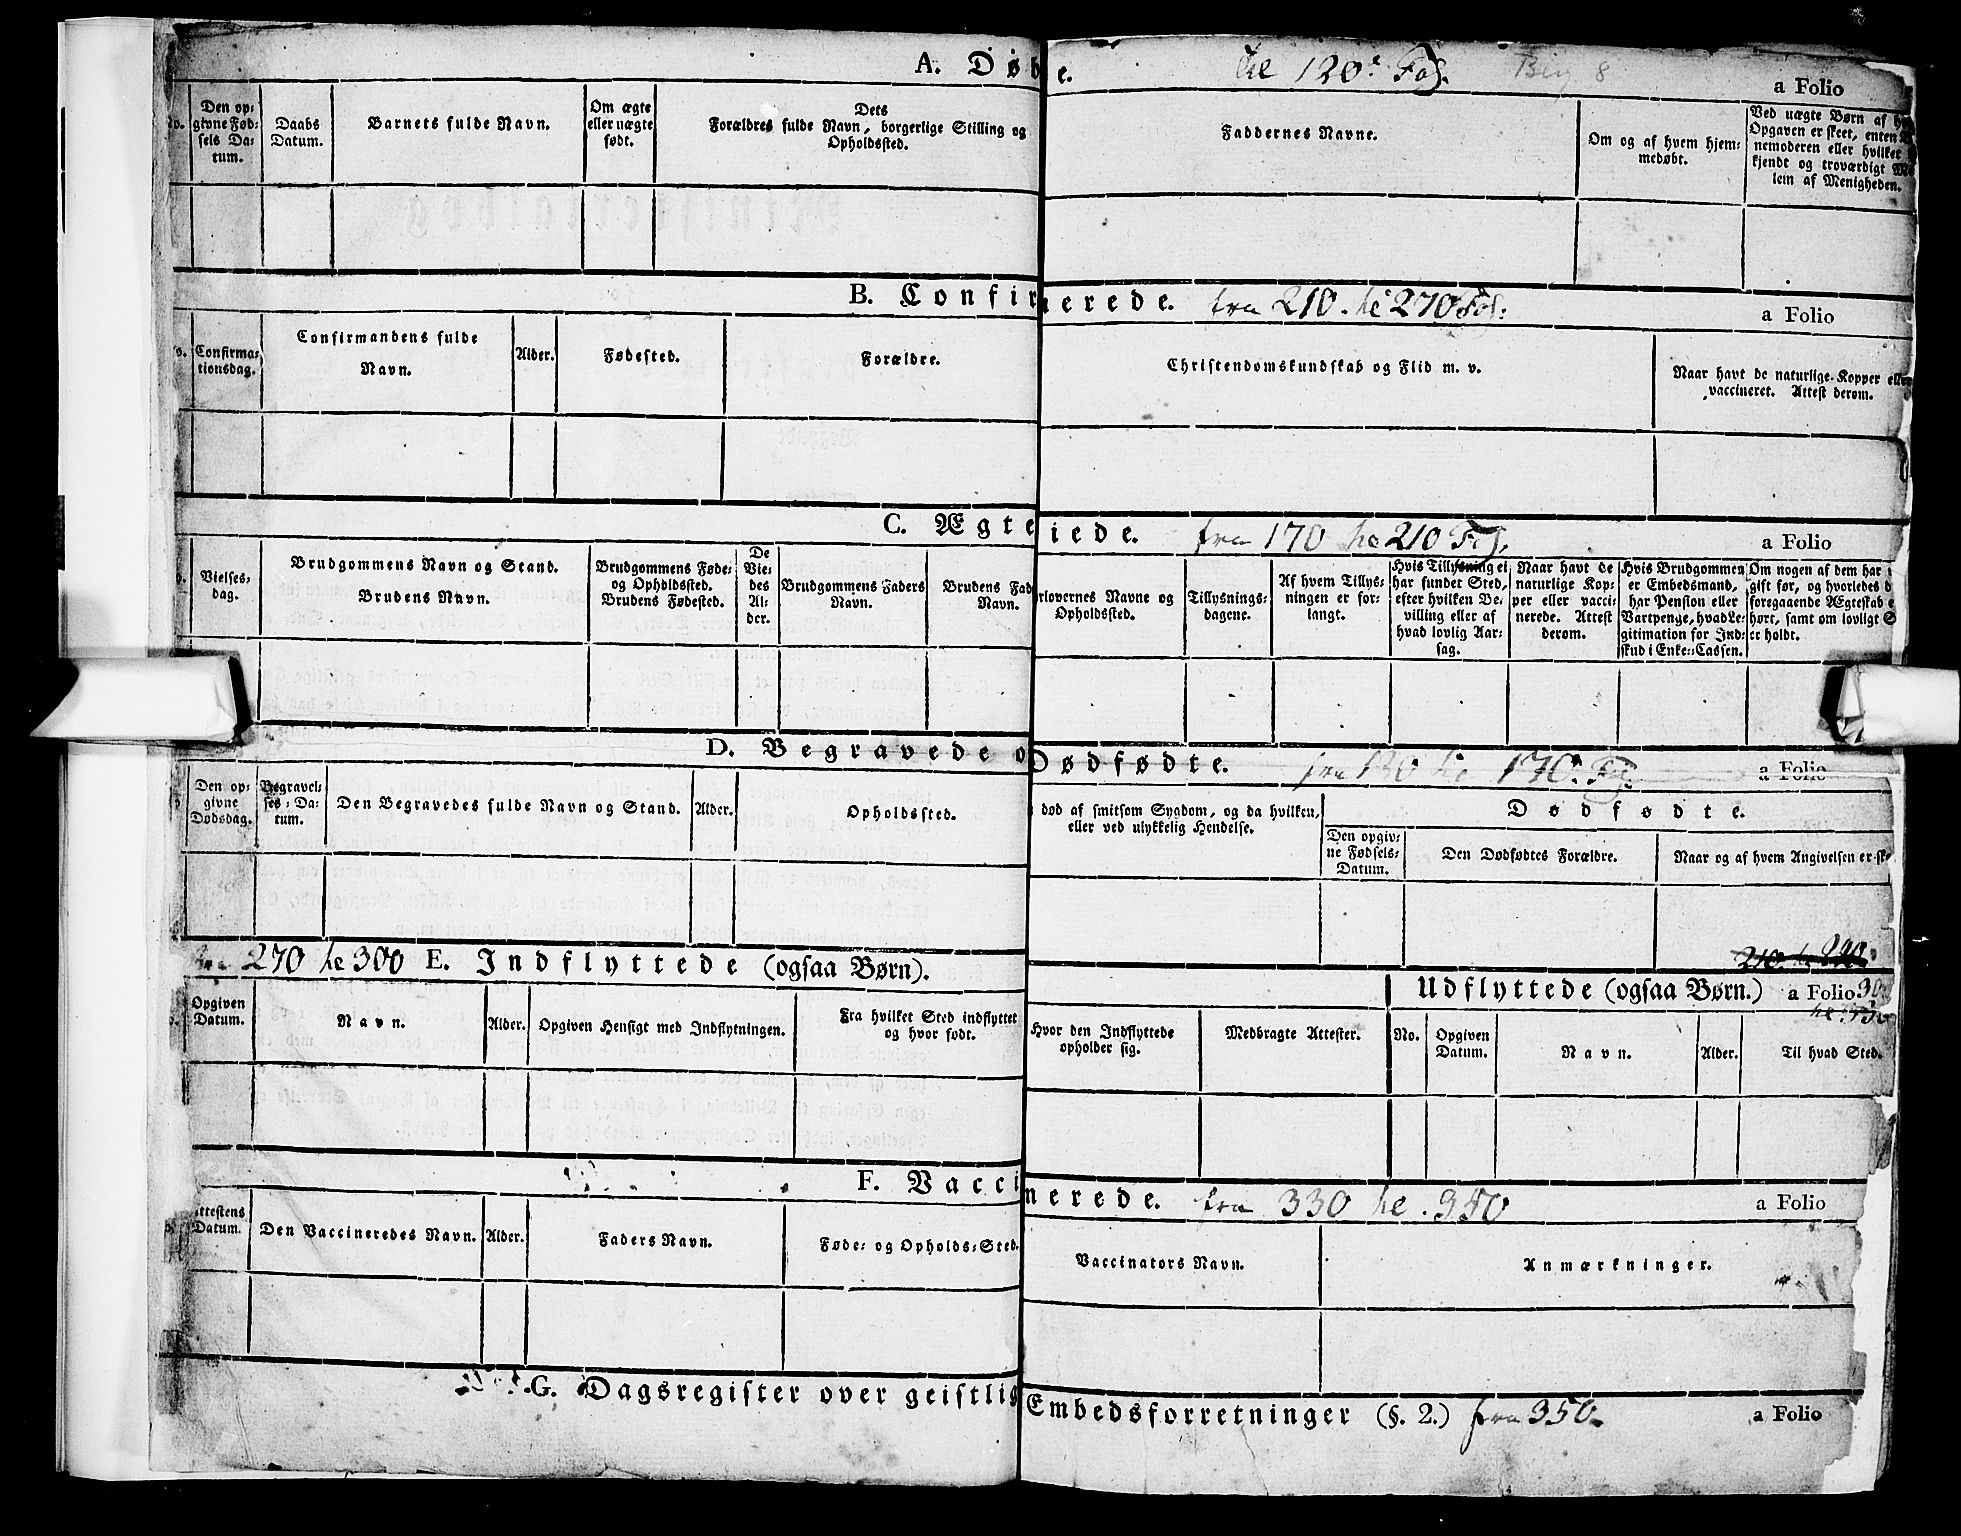 A. Døbe. til 120e Fol. a Folio
No. Den op⸗ givne Fød⸗ sels Da⸗ tum.
Daabs Datum.
Barnets fulde Navn.
Om ægte eller uægte født.
Dets Forældres fulde Navn, borgerlige Stilling og Opholdssted.
Faddernes Navne.
Om og af hvem hjem⸗ medøbt.
Ved uægte Børn af
Opgaven er skeet, enten
nemoderen eller hvilket
kjendt og troværdigt
lem af Menigheden.
B. Confirmerede. fra 210. til 270 Fol: a Folio
No. Confirma⸗ tionsdag.
Confirmandens fulde Navn.
Alder.
Fødested.
Forældre.
Christendomskundskab og Flid m. v.
Naar havt de naturlige Kopper eller vaccineret. Attest derom.
C. Ægteviede. fra 170 til 210 Fol. a Folio
Vielses⸗ dag.
Brudgommens Navn og Stand. Brudens Navn.
Brudgommens Føde⸗ og Opholdssted. Brudens Fødested.
De Vie⸗ des Al⸗ der.
Brudgommens Faders Navn.
Brudens Fad Navn.
rlovernes Navne og Opholdssted.
Tillysnings⸗ dagene.
Af hvem Tillys⸗ ningen er for⸗ langt.
Hvis Tillysning ei har fundet Sted, efter hvilken Be⸗ villing eller af hvad lovlig Aar⸗ sag.
Naar havt de naturlige Kop⸗ per eller vacci⸗ nerede. Attest derom.
Hvis Brudgommen er Embedsmand, har Pension eller Vartpenge, hvad Le⸗ gitimation for Ind⸗ skud i Enke⸗Cassen.
Om nogen af dem har
gift før, og hvorledes d
foregaaende Ægteskab e
hørt, samt om lovligt S
er holdt.
D. Begravede o Dødfødte. fra 130 til 170. Fol. a Folio
Den op⸗ givne Dødsdag.
Begravel⸗ ses⸗Da⸗ tum.
Den Begravedes fulde Navn og Stand.
Alder.
Opholdssted.
død af smitsom Sygdom, og da hvilken, eller ved ulykkelig Hendelse.
Dødfødte.
Den opgiv⸗ ne Fødsels⸗ Datum.
Den Dødfødtes Forældre.
Naar og af hvem Angivelsen er sk
fra 270 til 300 E. Indflyttede (ogsaa Børn).
Udflyttede (ogsaa Børn.) a Folio 300
Opgiven Datum.
Navn.
Alder.
Opgiven Hensigt med Indflytningen.
Fra hvilket Sted indflyttet og hvor født.
Hvor den Indflyttede opholder sig.
Medbragte Attester.
No.
Opgiven Datum.
Navn.
Alder.
Til hvad Sted.
F. Vaccinerede. fra 330 til 350 a Folio
Attestens Datum.
Den Vaccineredes Navn.
Alder.
Faders Navn.
Føde⸗ og Opholds⸗Sted.
Vaccinators Navn.
Anmærkninger.
G. Dagsregister over geistlig Embedsforretninger (§. 2.) fra 350. a Folio